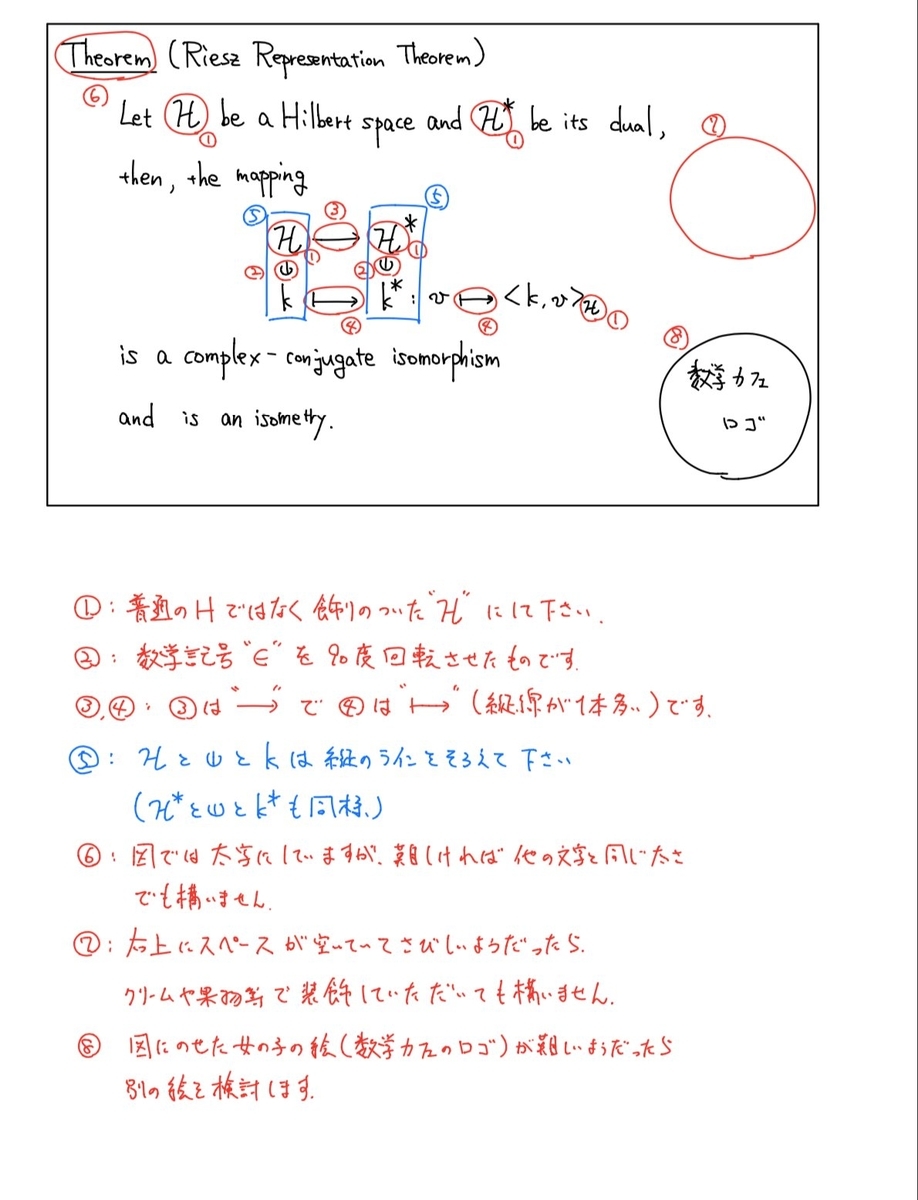 Theorem (Riesz Representation Theorem)
⑥
Let ℋ be a Hilbert space and ℋ* be its dual,
① ① ⑦
then, the mapping
⑤ ③ ⑤
ℋ ⟶ ℋ*
① ①
② ∈ ② ∈
k ⟼ k* : v ⟼ <k, v>ℋ ①
④ ④
is a complex-conjugate isomorphism
⑧
数学カフェ
ロゴ
and is an isometry.
①: 普通のHではなく飾りのついた"ℋ"にして下さい.
②: 数学記号"∈"を90度回転させたものです.
③,④: ③は"⟶"で④は"⟼"(縦線が1本多い)です.
⑤: ℋと∈とkは縦のラインをそろえて下さい
(ℋ*と∈とk*も同様.)
⑥: 図では太字にしていますが、難しければ他の文字と同じ太さ
でも構いません.
⑦: 右上にスペースが空いていてさびしいようだったら.
クリームや果物等で装飾していただいても構いません.
⑧ 図にのせた女の子の絵(数学カフェのロゴ)が難しいようだったら
別の絵を検討します.